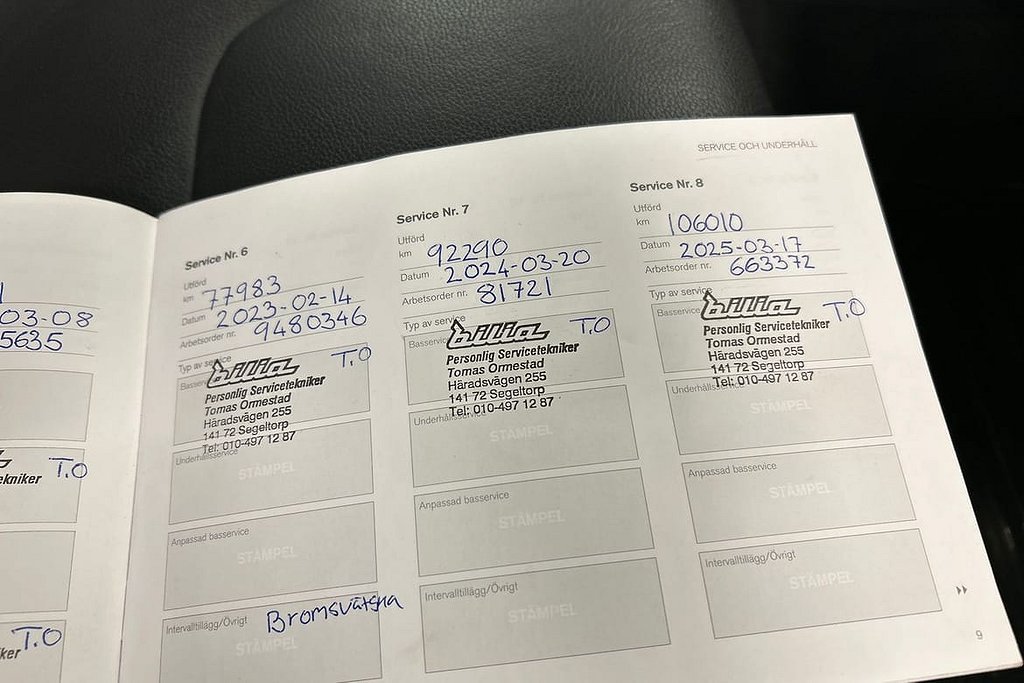 SERVICE OCH UNDERHÅLL
03-08
5635
T.O
ekniker
T.O
ker
Service Nr. 6
Utförd
km 77983
Datum 2023-02-14
Arbetsorder nr. 9480346
Typ av service
billia T.O
Personlig Servicetekniker
Tomas Ormestad
Häradsvägen 255
141 72 Segeltorp
Tel: 010-497 12 87
Underhållsservice
STÄMPEL
Anpassad basservice
STÄMPEL
Intervalltillägg/Övrigt Bromsvätska
STÄMPEL
Service Nr. 7
Utförd
km 92290
Datum 2024-03-20
Arbetsorder nr. 81721
Typ av service
Basservice
billia T.O
Personlig Servicetekniker
Tomas Ormestad
Häradsvägen 255
141 72 Segeltorp
Tel: 010-497 12 87
Underhållsservice
STÄMPEL
Anpassad basservice
STÄMPEL
Intervalltillägg/Övrigt
STÄMPEL
Service Nr. 8
Utförd
km 106010
Datum 2025-03-17
Arbetsorder nr. 663372
Typ av service
Basservice
billia T.O
Personlig Servicetekniker
Tomas Ormestad
Häradsvägen 255
141 72 Segeltorp
Tel: 010-497 12 87
Underhållsservice
STÄMPEL
Anpassad basservice
STÄMPEL
Intervalltillägg/Övrigt
STÄMPEL
9